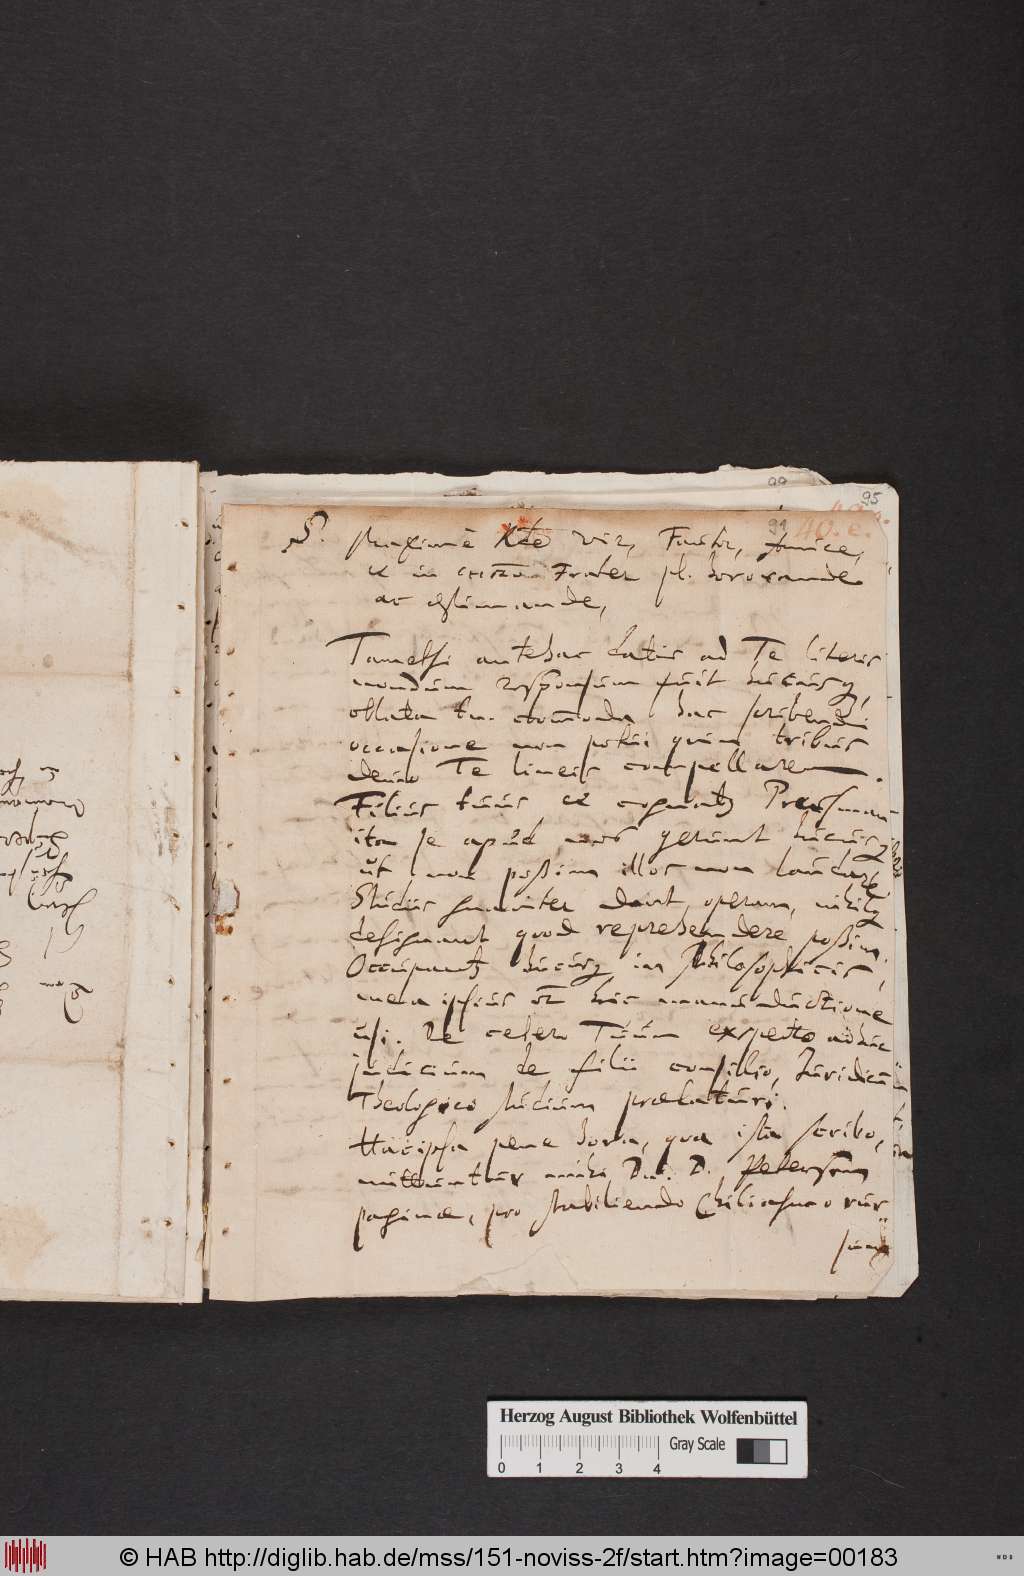 99
95
91
40. e.
S. Maxime Rde Vir, Fautor, Amice,
et in Frater pl. honorande
ac æstimande,
Tametsi antehac datis ad Te literis
nondum responsum fuit hucusq,
oblata tn. commoda hac scribendi
occasione non potui quin tribus
denuo Te lineis compellarem.
Filius tuus et
ita se apud nos gerunt hucusq
ut non possim illos non laudare.
Studiis gnaviter dant operam, nihilq
designant quod reprehendere possim.
Occupant hucusq in Philosophicis,
mea ipsius hic manuductione
usi. De cetero Tuum expecto adhuc
judicium de filii consilio, Juridicu
Theologico studium prælaturi.
Hac ipsa pene hora, qua ista scribo,
mittuntur mihi Dn. D. Petersen
paginæ, pro stabiliendo Chiliasmo rur
sum
Herzog August Bibliothek Wolfenbüttel
Gray Scale
0 1 2 3 4
© HAB http://diglib.hab.de/mss/151-noviss-2f/start.htm?image=00183